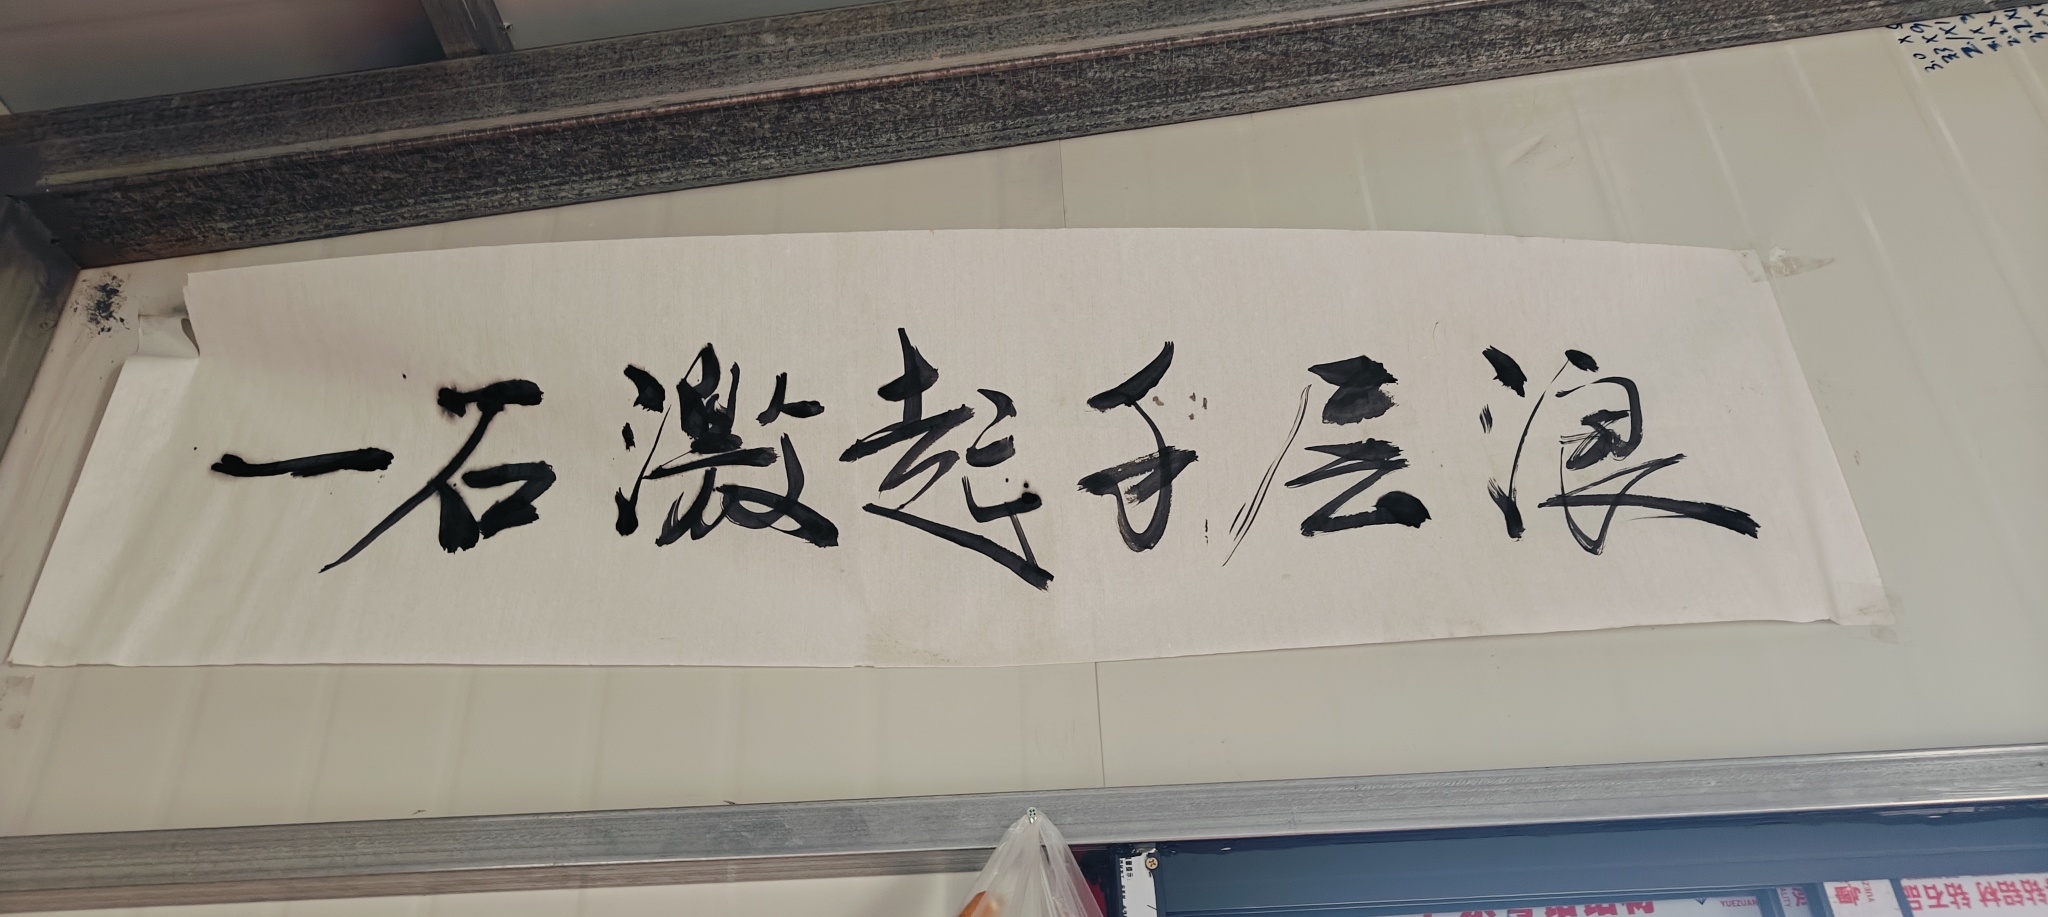 一石激起千层浪
YUEZUAN